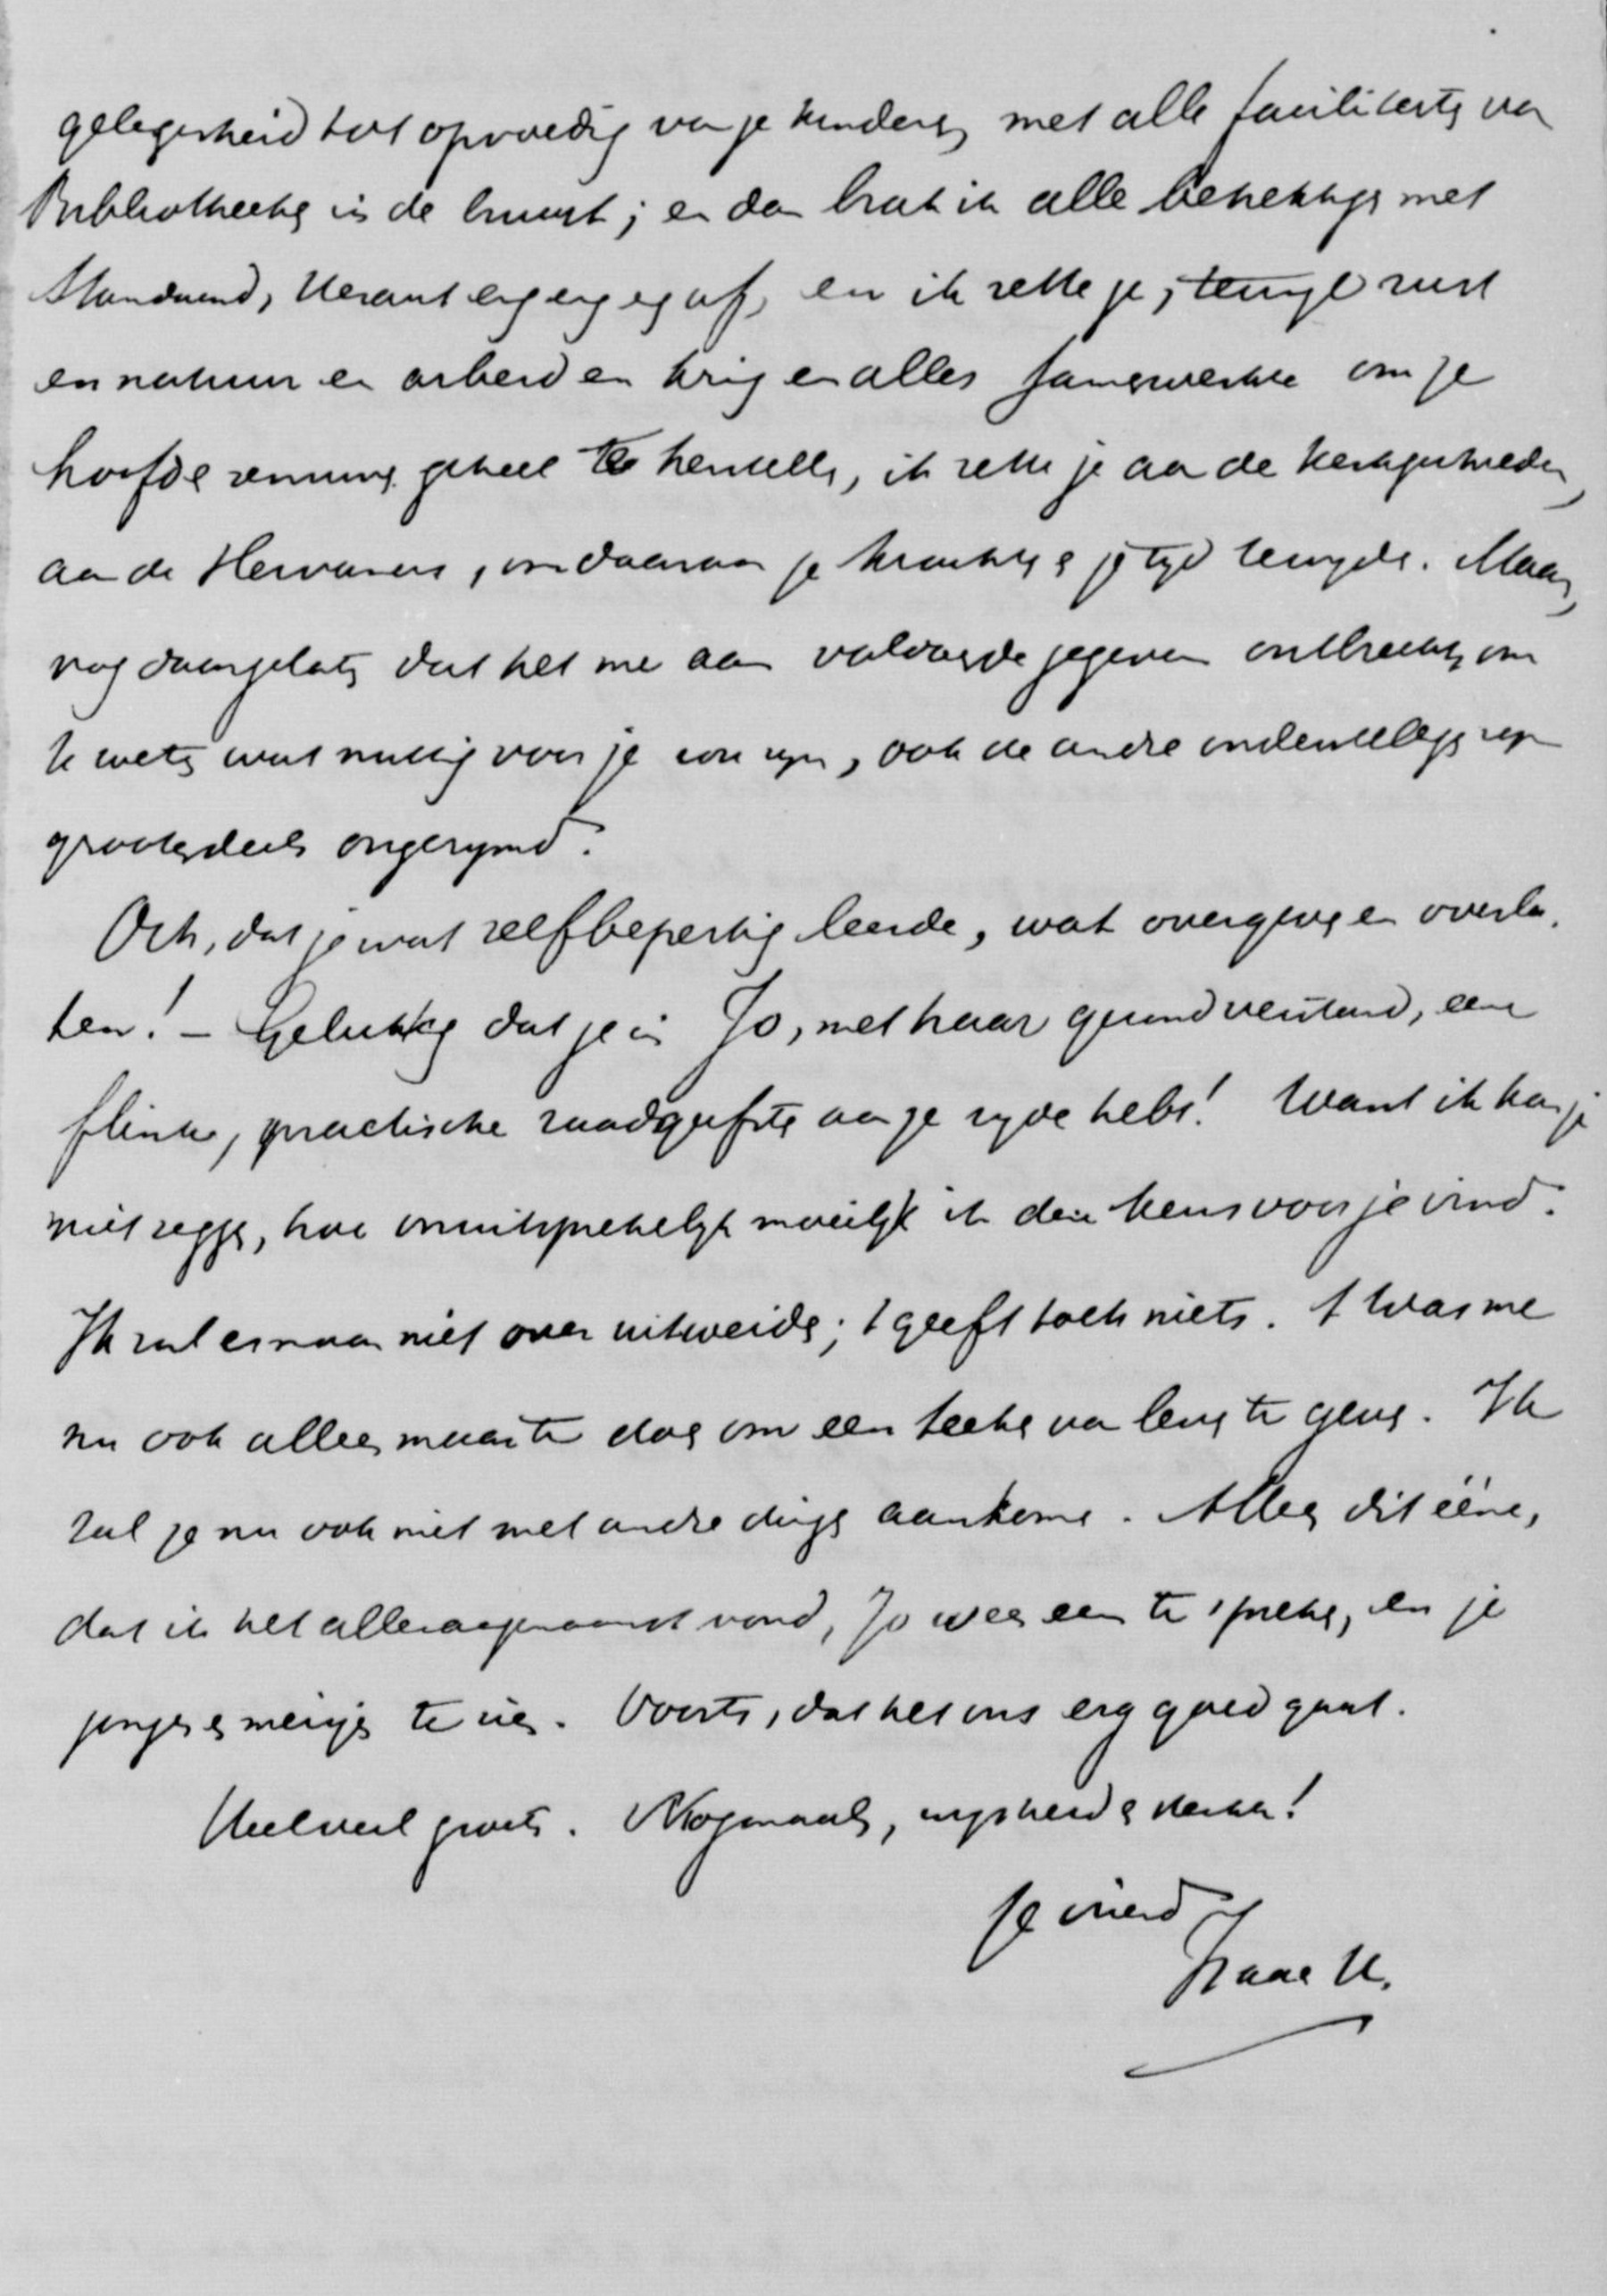 gelegenheid tot opvoeding van je kinderen, met alle faciliteiten van
Bibliotheeken in de buurt; en dan brak ik alle betrekkingen met
Standaard, af, en ik zette je, terwijl rust
en natuur en arbeid en krijg en alles samenwerkte om je
hoofd geheel te herstellen, ik zette je aan de kerkgeschiedenis,
aan de Hervormers, om daaraan je krachten en je tijd te wijden. Maar,
nog daargelaten dat het me aan voldoende gegevens ontbreekt, om
te weten wat nuttig voor je zou zijn, ook de andere onderstellingen zijn
grootendeels ongerijmd.
Och, dat je wat zelfbeperking leerde, wat overgeving en overla-
ten! - Gelukkig dat je in Jo, met haar gezond verstand, een
flinke, practische raadgeefster aan je zijde hebt! Want ik kan je
niet zeggen, hoe onuitsprekelijk moeilijk ik deze keus voor je vind.
Ik zal er maar niet over uitweiden; 't geeft toch niets. 't Was me
nu ook alleen maar te doen om een teeken van leven te geven. Ik
zal je nu ook niet met andre dingen aankomen. Alleen dit ééne,
dat ik het alleraangenaamst vond, Jo weer eens te spreken, en je
jongens en meisjes te zien. Voorts, dat het ons erg goed gaat.
Veel veel groeten. Nogmaals, wijsheid en sterkte!
Je vriend
Isaac V.